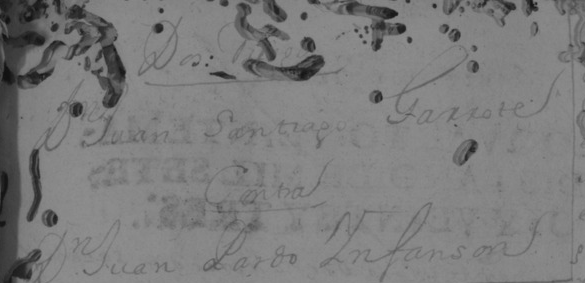 Dos
Dn Juan Santiago Garrote
Contra
Dn Juan Pardo Infanson